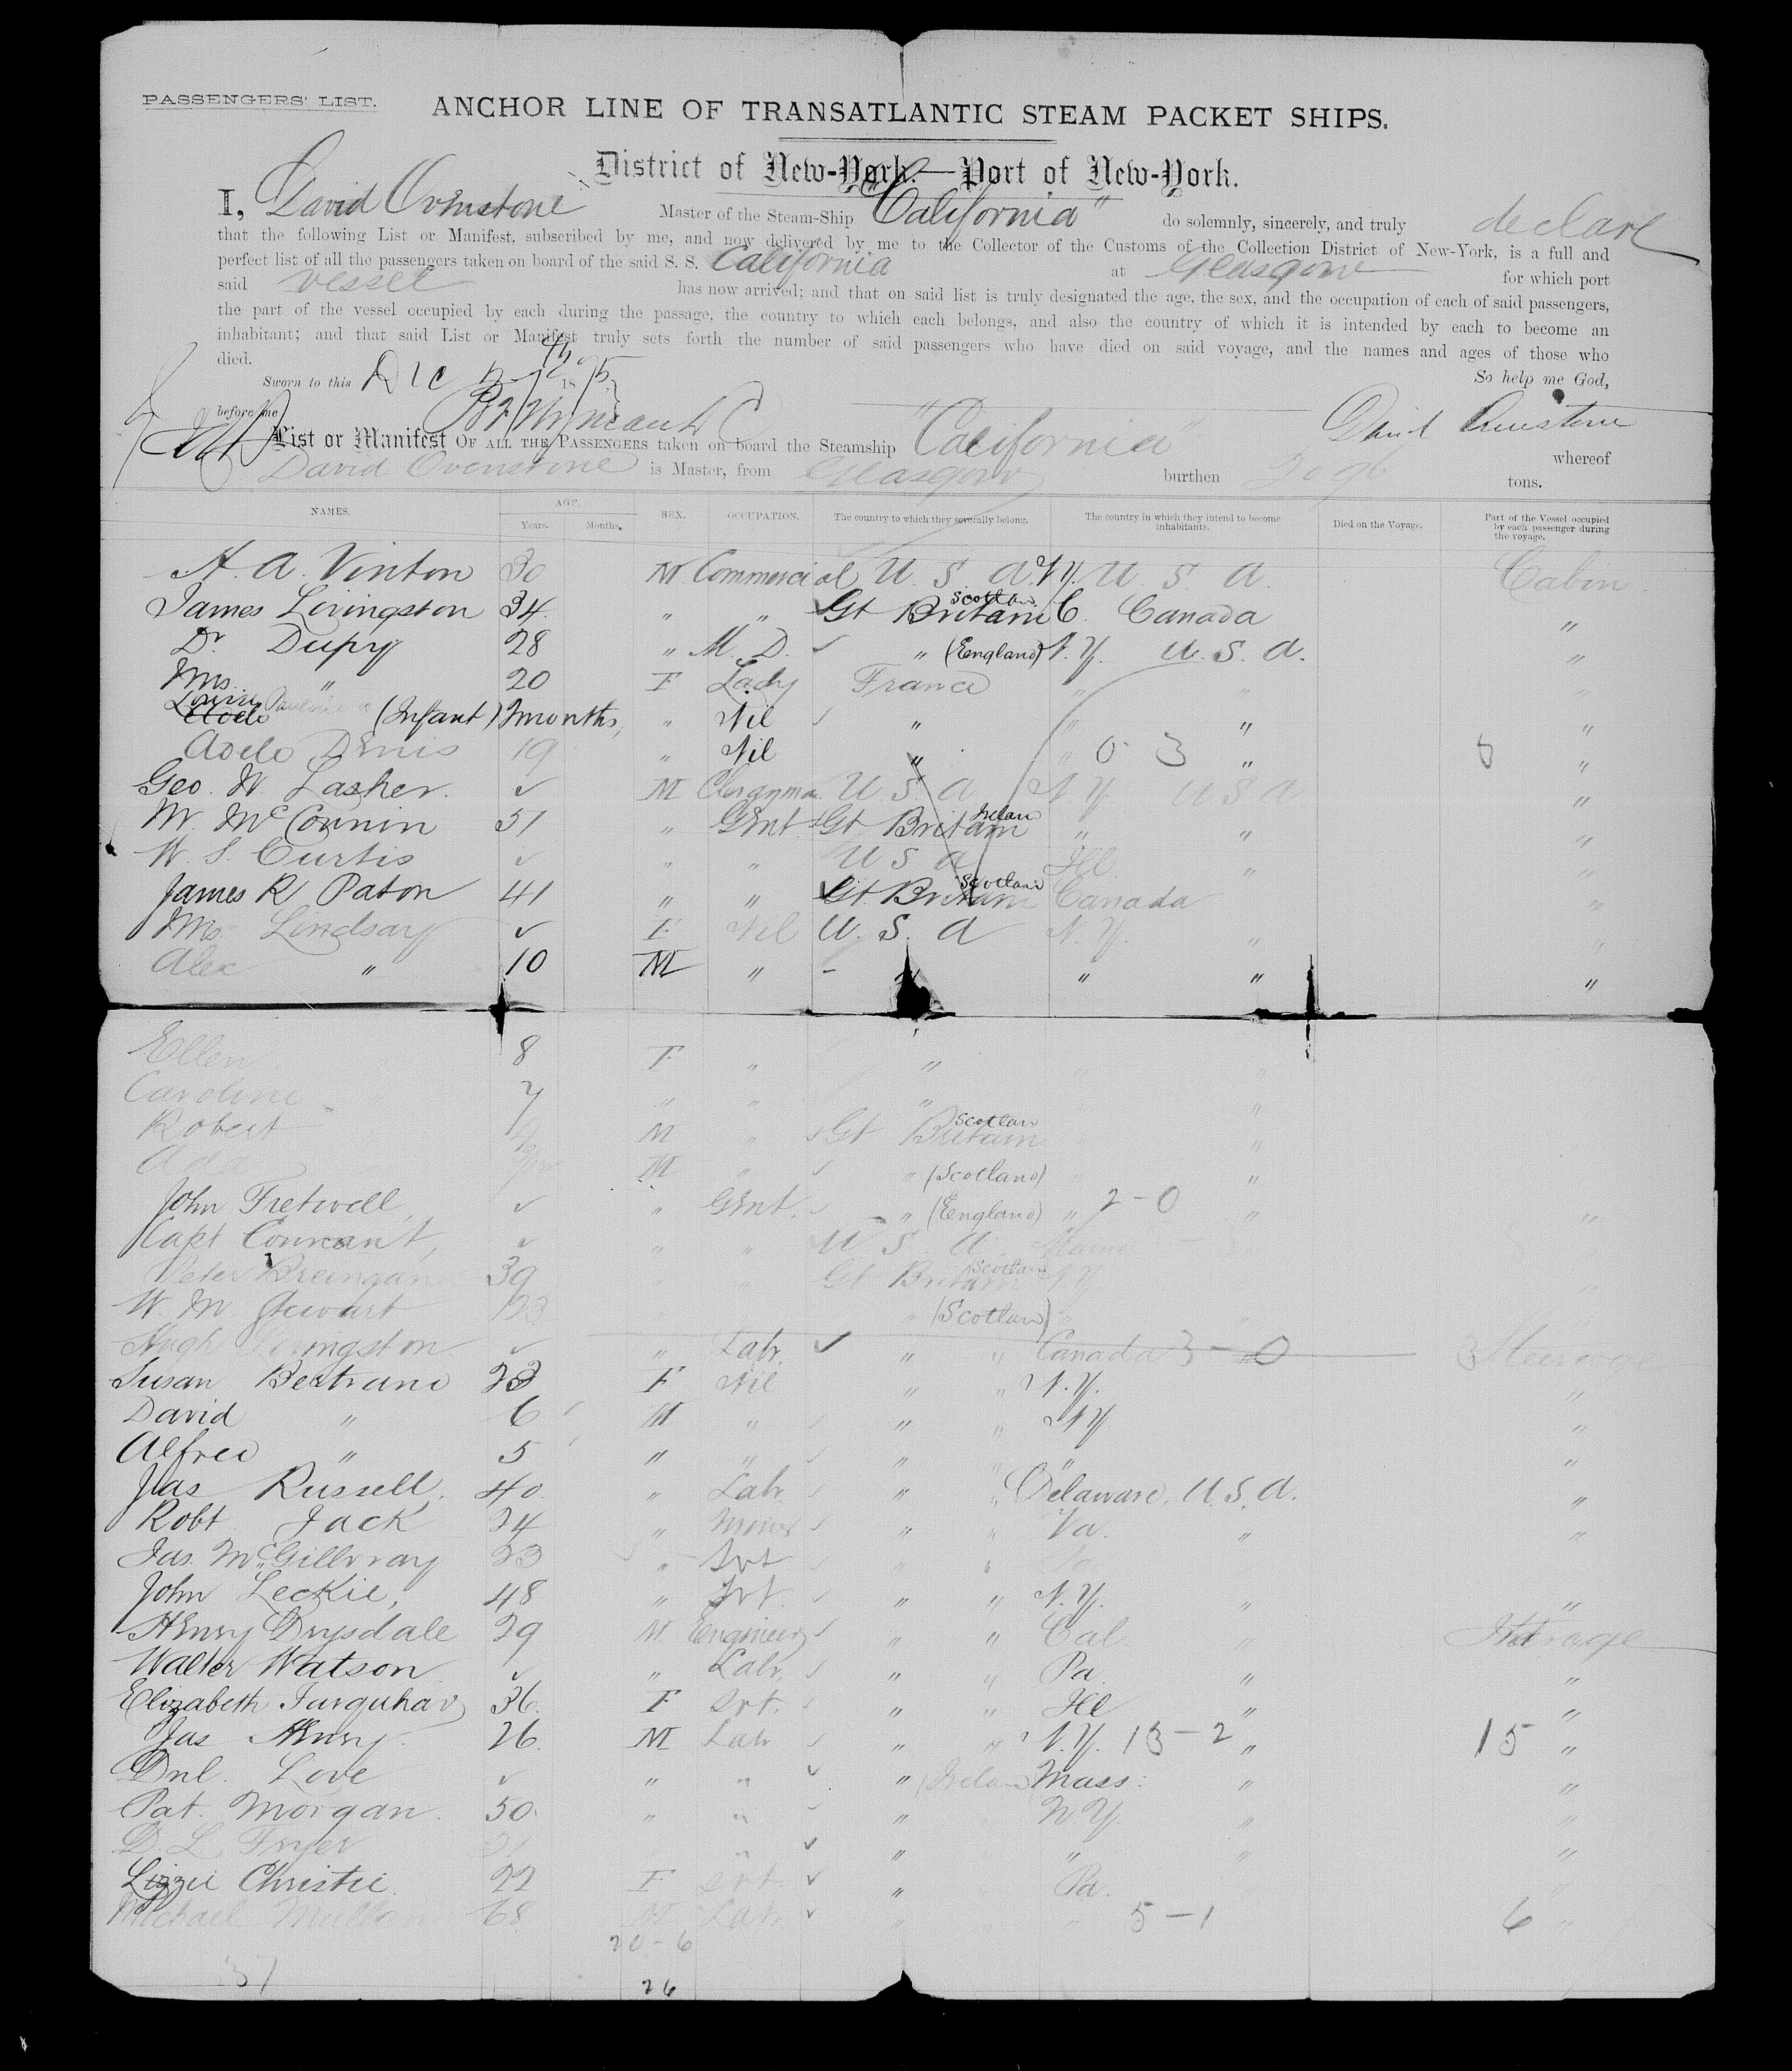 PASSENGERS' LIST.
ANCHOR LINE OF TRANSATLANTIC STEAM PACKET SHIPS.
District of New-York.—Port of New-York.
I, David Ovenstone Master of the Steam-Ship "California" do solemnly, sincerely, and truly declare
that the following List or Manifest, subscribed by me, and now delivered by me to the Collector of the Customs of the Collection District of New-York, is a full and
perfect list of all the passengers taken on board of the said S. S. California at Glasgow for which port
said vessel has now arrived; and that on said list is truly designated the age, the sex, and the occupation of each of said passengers,
the part of the vessel occupied by each during the passage, the country to which each belongs, and also the country of which it is intended by each to become an
inhabitant; and that said List or Manifest truly sets forth the number of said passengers who have died on said voyage, and the names and ages of those who
died.
Sworn to this Dec 18 So help me God,
before me David Ovenstone
List or Manifest OF ALL THE PASSENGERS taken on board the Steamship "California" whereof
David Ovenstone is Master, from Glasgow burthen tons.
NAMES. AGE. Years. Months. SEX. OCCUPATION. The country to which they severally belong. The country in which they intend to become inhabitants. Died on the Voyage. Part of the Vessel occupied by each passenger during the voyage.
A. A. Vinton 30 M Commercial U. S. A. N.Y. U S A. Cabin
James Livingston 34 " " Gt Britain Scotlan C. Canada "
Dr Dupry 28 " M. D. " (England) N.Y. U. S. A. "
Mrs " 20 F Lady France " " "
Louise Pauline " (Infant) 2 months, " Nil " " " "
Adele Denis 19 " Nil " " 0 3 " 8 "
Geo. W. Lasher. ✓ M Clergyman U. S. A N.Y. U S A "
W. McConnin 51 " Gent. Gt Britain Irelan " " "
W. S. Curtis ✓ " " U S A Ill. " "
James R Paton 41 " " Gt Britain Scotlan Canada "
Mrs Lindsay ✓ F Nil U. S. A N.Y. " "
Alex " 10 M " - " " "
Ellen 8 F " " "
Caroline 7 " " " "
Robert M " Gt Britain Scotlan "
Ada M " " (Scotland) "
John Fretwell, ✓ " Gent. " (England) " 2-0 " "
Capt Connant, ✓ " " U S A
Peter 39 Gt Britain Scotlan N.Y.
W. M Stewart 23 " (Scotland) "
Hugh Livingston ✓ " Labr. ✓ " " Canada 3-0 3 Steerage
Susan Bertrand 23 F Nil " " N.Y. "
David " 6 M " " " N.Y "
Alfred " 5 " " " " " "
Jas Russell. 40 " Labr " " Delaware, U.S.A. "
Robt Jack 24 " Miner " " Va. " "
Jas. McGillvray 23 " Svt "
John Leckie, 48 " Svt. " " N.Y. " "
Henry Drysdale 29 M Engineer " " Cal. " Steerage
Walter Watson ✓ " Labr. " " Pa. " "
Elizabeth Farquhar 36. F Svt. " " Ill " "
Jas Henry. 26 M Labr " " N.Y. 13-2 " 15 "
Dnl. Love ✓ " " ✓ " (Irelan Mass: " "
Pat. Morgan. 50. " " " N Y " "
D. L Fryer 21 " ✓ " " " "
Lizzie Christie. 22 F Svt. ✓ " Pa. "
Michael 68 M Labr ✓ " " " 5-1 6 "
20-6
37
26